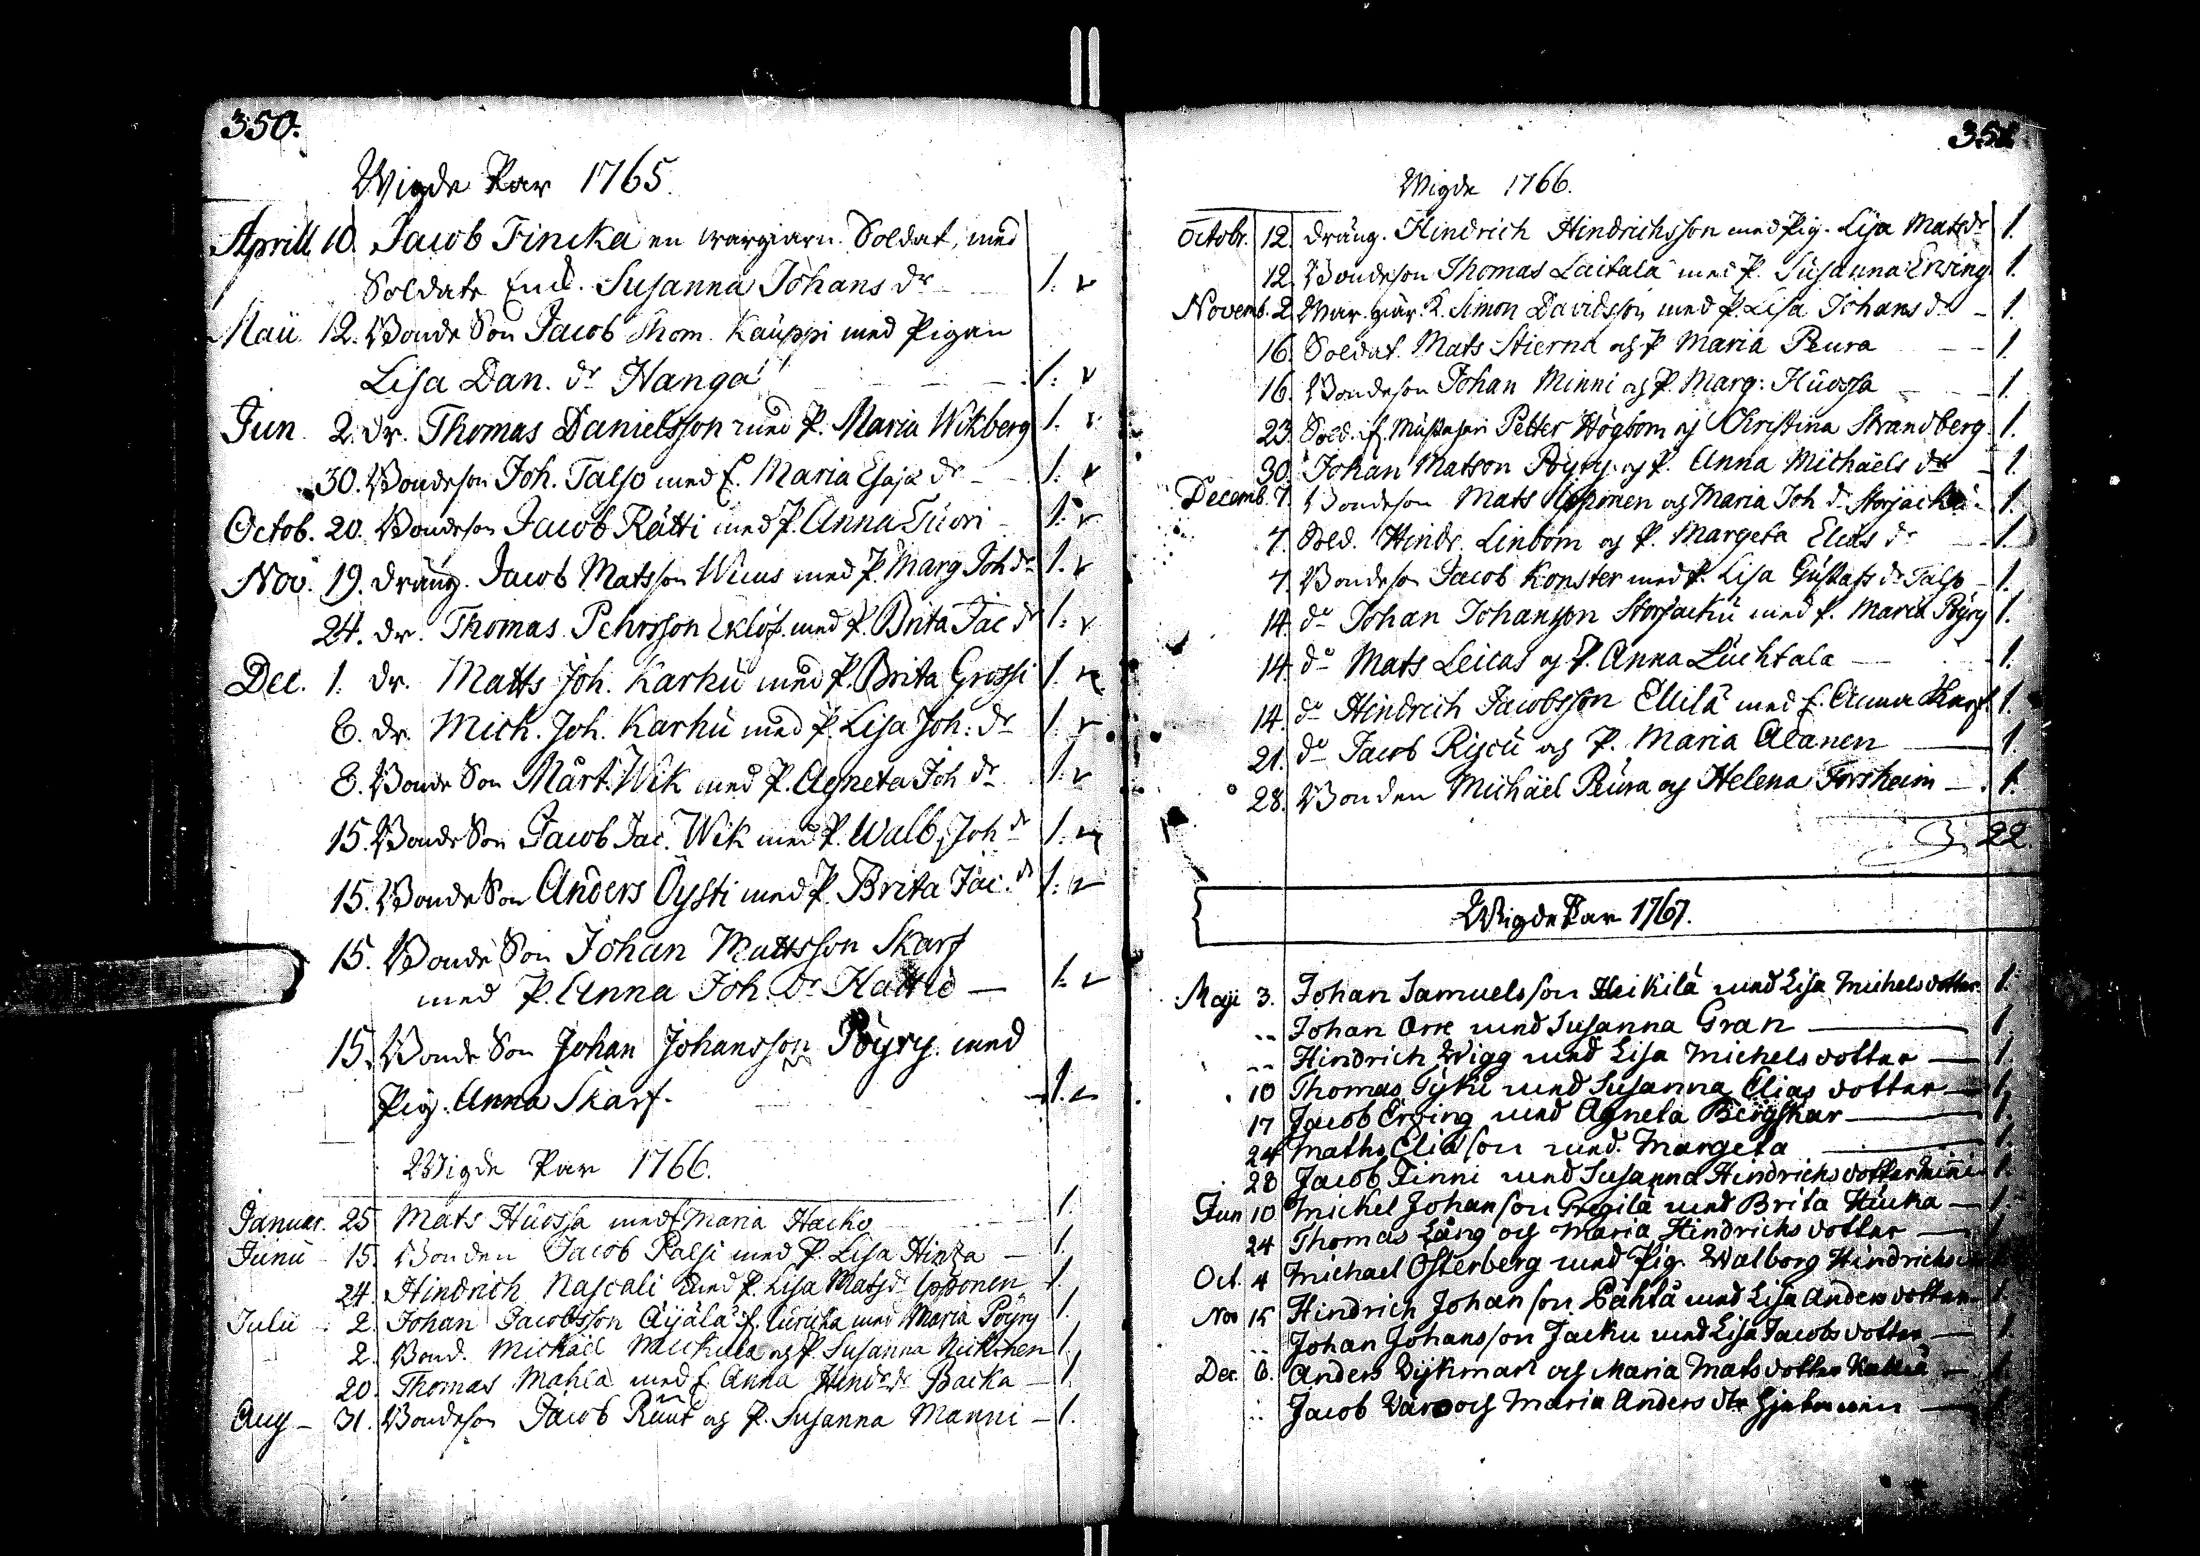 350.
Wigde Par 1765.
Aprill 10. Jacob Fincka en wargiarn. Soldat, med
Soldate Enk. Susanna Johans dr 1.
Maii 12. Bonde Son Jacob Thom. Kauppi med Pigan
Lisa Dan. dr Hanga 1.
Jun. 2. dr. Thomas Danielsson med P. Maria Wikberg 1.
30. Bondeson Joh. Talso med E. Maria Esaiæ dr 1.
Octob. 20. Bondeson Jacob Rätti med P. Anna Tuori 1.
Nov. 19. dräng. Jacob Matsson med P. Marg Joh dr 1.
24. dr. Thomas Pehrsson Eklöf med P. Brita Jac dr 1.
Dec. 1. dr. Matts Joh. Karhu med P. Brita Grossi 1.
8. dr. Mich. Joh. Karhu med P. Lisa Joh: dr 1.
8. Bonde Son Mårt. Wik med P. Agneta Joh dr 1.
15. Bonde Son Jacob Jac. Wik med P. Walb. Joh dr 1.
15. Bonde Son Anders Öysti med P. Brita Jac. dr 1.
15. Bonde Son Johan Mattsson Skarf
med P. Anna Joh. dr 1.
15. Bonde Son Johan Johansson Pöyry med
Pig. Anna Skarf. 1.
Wigde Par 1766.
Januar. 25 Mats Huossa med E Maria Hacko 1.
Junii 15. Bonden Jacob Palsi med P. Lisa Hinza 1.
24. Hindrich Nascali med P. Lisa Mats dr Lopponen 1.
Julii 2. Johan Jacobsson Äijälä med Maria Pöyry 1.
2. Bond. Michäel Mickula og P. Susanna 1.
20. Thomas Mahla med E Anna Hindr dr Backa 1.
Aug 31. Bondeson Jacob Ruut og P. Susanna Manni 1.
351.
Wigde 1766.
Octobr. 12. dräng. Hindrich Hindrichsson med Pig. Lisa Mats dr 1.
12. Bondeson Thomas Laitala med P. Susanna Erving 1.
Novemb. 2. War. giär. K. Simon Davidsson med P. Lisa Johans dr 1.
16. Soldat. Mats Stierna og P Maria Peura 1.
16. Bondeson Johan Minni og P. Marg: Huossa 1.
23. Sold. Petter Högbom og Christina Strandberg 1.
30. Johan Matson Pöyry og P. Anna Michaels dr 1.
Decemb. 7. Bondeson Mats Lopponen og Maria Joh dr Storjacku 1.
7. Sold. Hindr. Linbom og P. Margeta Elias dr 1.
7. Bondeson Jacob Konster med P. Lisa Gustafs dr Talso 1.
14. do Johan Johanson Storjacku med P. Maria Pöyry 1.
14. do Mats Leicas og P. Anna Luchtala 1.
14. do Hindrich Jacobsson Ellilä med E. Anna Skarf 1.
21. do Jacob Riscu og P. Maria Alanen 1.
28. Bonden Michäel Peura og Helena Forsheim 1.
22.
Wigde Par 1767.
Maji 3. Johan Samuelsson Heikilä med Lisa Michelsdotter 1.
-- Johan Orre med Susanna Gran 1.
-- Hindrich Wigg med Lisa Michels dotter 1.
10 Thomas Tyku med Susanna Elias dotter 1.
17 Jacob Erving med Agneta Bergskar 1.
24 Maths Eliasson med Margeta 1.
28 Jacob Finni med Susanna Hindrichs dotter Minni 1.
Jun 10 Michel Johanson Gregilä med Brita Hiuka 1.
24 Thomas Lång och Maria Hindrichs dotter 1.
Oct. 4 Michael Österberg med Pig. Walborg Hindrichs
Nov 15 Hindrich Johanson Pahta med Lisa Anders dotter 1.
-- Johan Johansson Jacku med Lisa Jacobs dotter 1.
Dec. 6. Anders Wijkman och Maria Mats dotter 1.
-- Jacob Waro och Maria Anders dtr